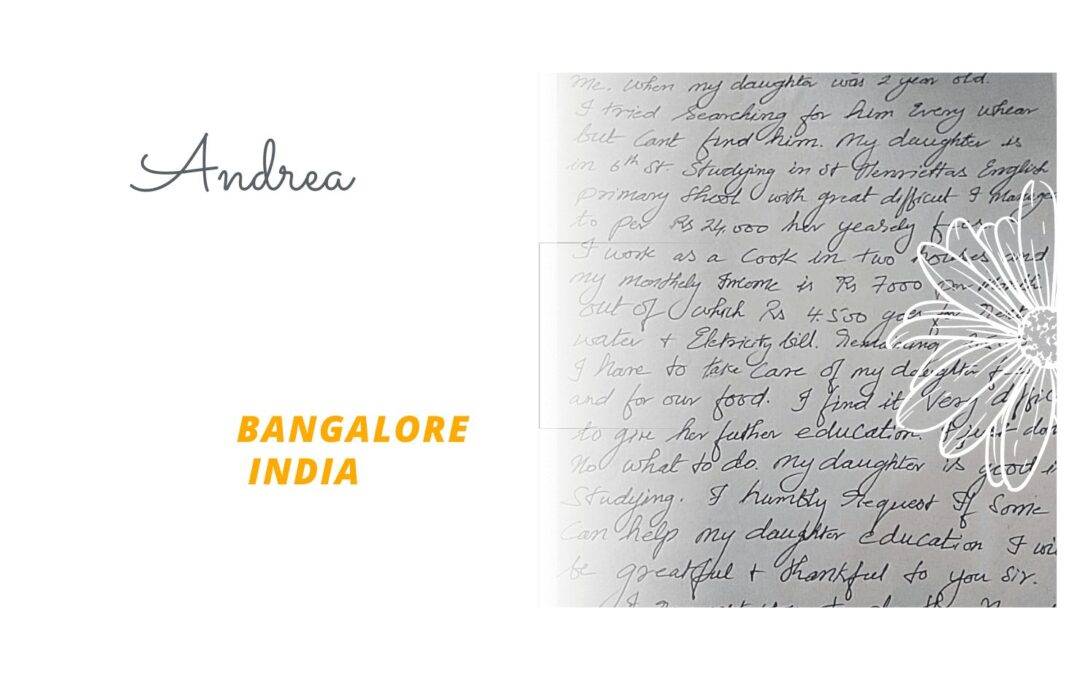 Andrea
BANGALORE
INDIA
me. when my daughter was 2 year old.
I tried Searching for him Every whear
but Cant find him. My daughter is
in 6th St. Studying in St Henriettas English
primary Shool with great difficult I manage
to per Rs 24,000 her yearsly
I work as a Cook in two houses and
my monthely Income is Rs 7000
out of which Rs 4.500 goes
water + Eletricity bill.
I have to take Care of my daughter
and for our food. I find it very diffic
to give her futher education. I just don
No what to do. my daughter is good i
Studying. I humbly Request If Some
Can help my daughter education I wi
be greatful + thankful to you Sir.